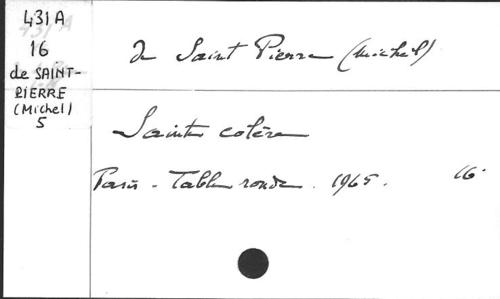 431A
16
de SAINT-
PIERRE
(Michel)
5
de Saint Pierre (Michel)
Sainte colère
Paris - Table ronde. 1965. 16°